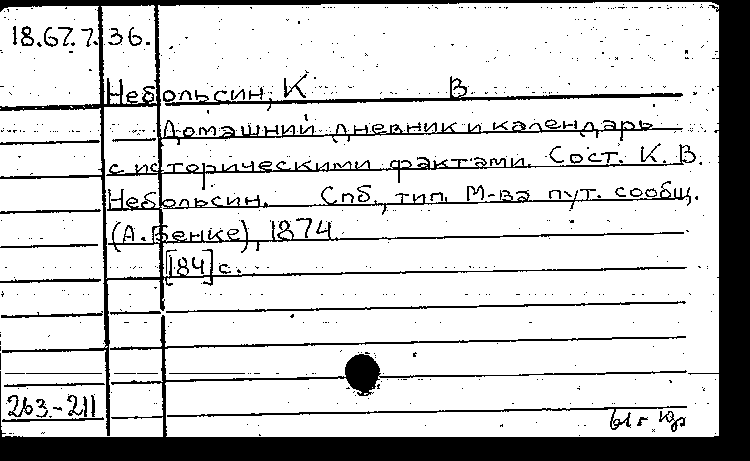 18.67.7.36.
Небольсин, К В
Домашний дневник и календарь
с историческими фактами. Сост. К. В.
Небольсин. Спб., тип. М-ва пут. сообщ.
(А. Бенке), 1874.
[184] с.
263-211
61 г.